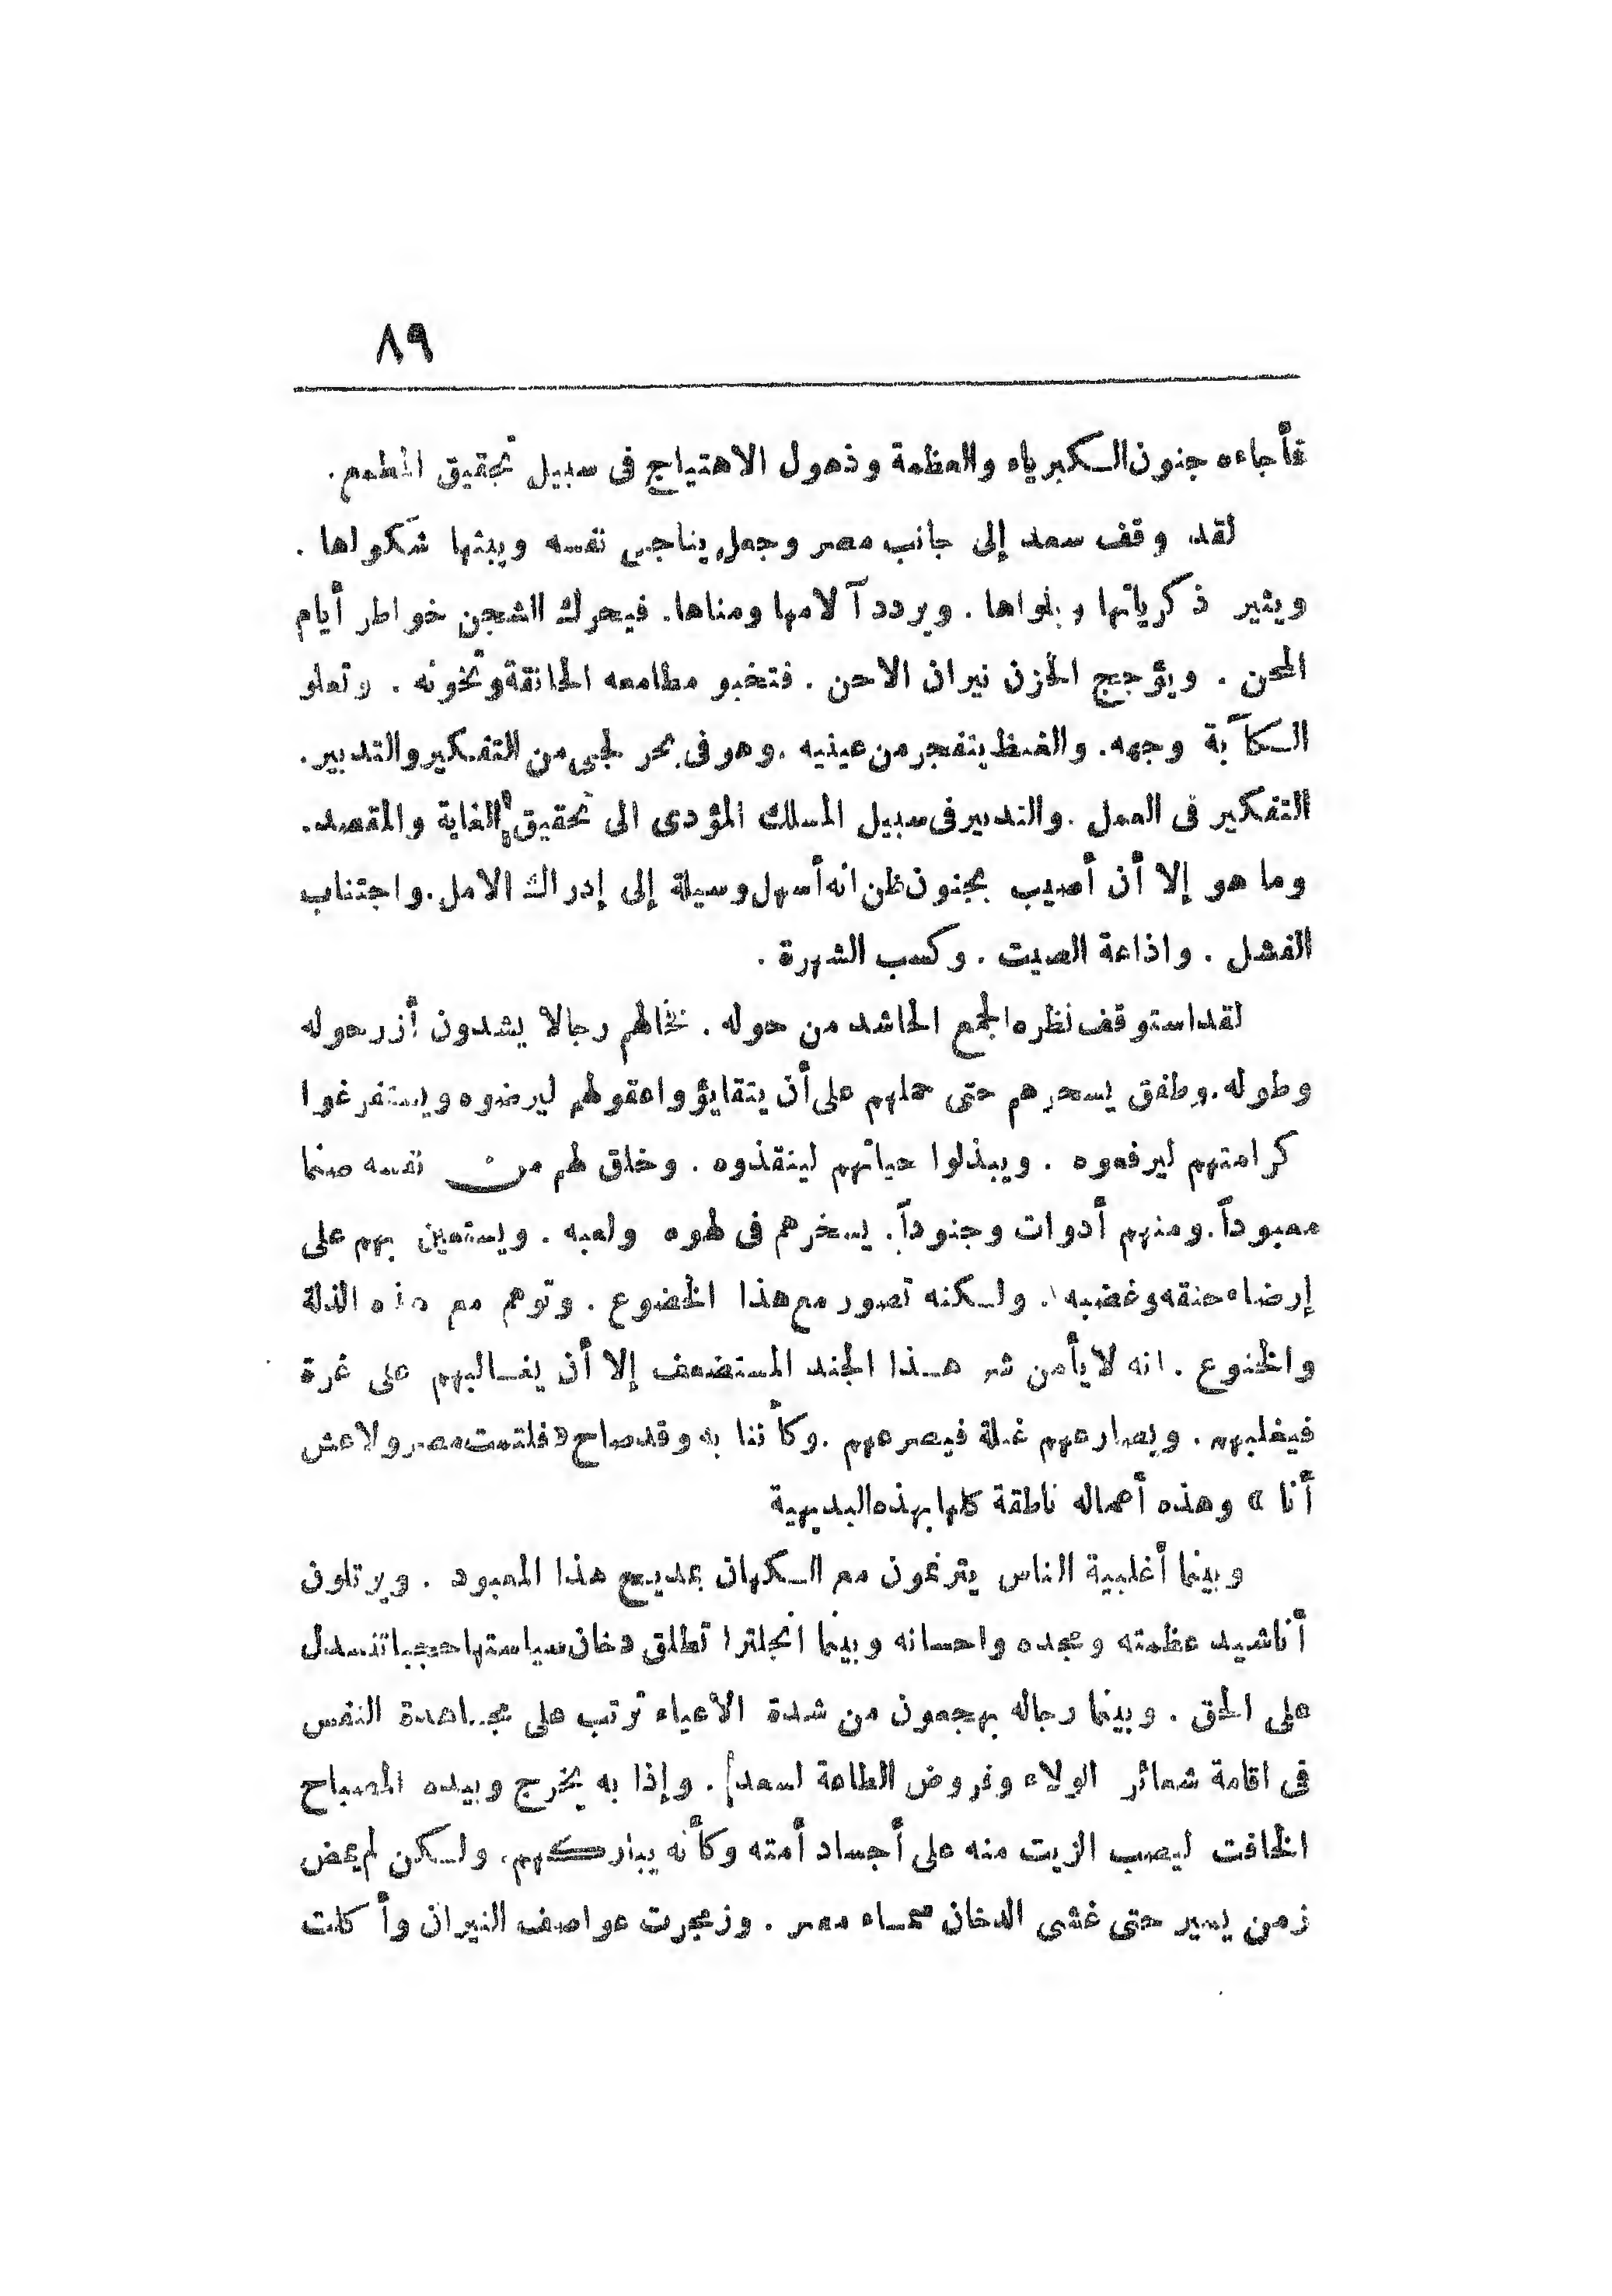 ٨٩
فأجاءه جنون الكبرياء والعظمة وذهول الاهتياج فى سبيل تحقيق المطمع .
لقد وقف سعد إلى جانب مصر وجعل يناجى نفسه ويبثها شكواها .
ويثير ذكرياتها وبلواها . ويردد آلامها ومناها . فيحرك الشجن خواطر أيام
المحن . ويؤجج الحزن نيران الاحن . فتخبو مطامعه الخانقة وتخونه . وتعلو
الكآبة وجهه . والغيظ يتفجر من عينيه . وهو فى بحر لجى من التفكير والتدبير .
التفكير فى العمل . والتدبير فى سبيل المسلك المؤدى الى تحقيق الغاية والمقصد .
وما هو إلا أن أصيب بجنون ظن انه أسهل وسيلة إلى إدراك الامل . واجتناب
الفشل . واذاعة الصيت . وكسب الشهرة .
لقد استوقف نظره الجمع الحاشد من حوله . نخالهم رجالا يشدون أزر حوله
وطوله . وطفق يسحرهم حتى حملهم على أن يتقايؤوا عقولهم ليرضوه ويستفرغوا
كرامتهم ليرفعوه . ويبذلوا حياتهم لينقذوه . وخلق لهم من نفسه صنما
معبوداً . ومنهم أدوات وجنوداً . يسخرهم فى لهوه ولعبه . ويستعين بهم على
إرضاء حنقه وغضبه . ولكنه تصور مع هذا الخضوع . وتوهم مع هذه الذلة
والخنوع . انه لا يأمن شر هذا الجند المستضعف إلا أن يغالبهم على غرة
فيغلبهم . ويصارعهم غيلة فيصرعهم . وكأننا به وقد صاح « فلتمت مصر ولاعش
أنا » وهذه أعماله ناطقة كلها بهذه البديهية
وبينما أغلبية الناس يترنمون مع الكهان بمديح هذا المعبود . ويرتلون
أناشيد عظمته ومجده واحسانه وبينما انجلترا تطلق دخان سياستها حجبا تنسدل
على الحق . وبينما رجاله يهجعون من شدة الاعياء ترتب على مجاهدة النفس
فى اقامة شعائر الولاء وفروض الطاعة لسعد . وإذا به يخرج وبيده المصباح
الخافت ليصب الزيت منه على أجساد أمته وكأنه يباركهم . ولكن لم يمض
زمن يسير حتى غشى الدخان سماء مصر . وزمجرت عواصف النيران وأكلت